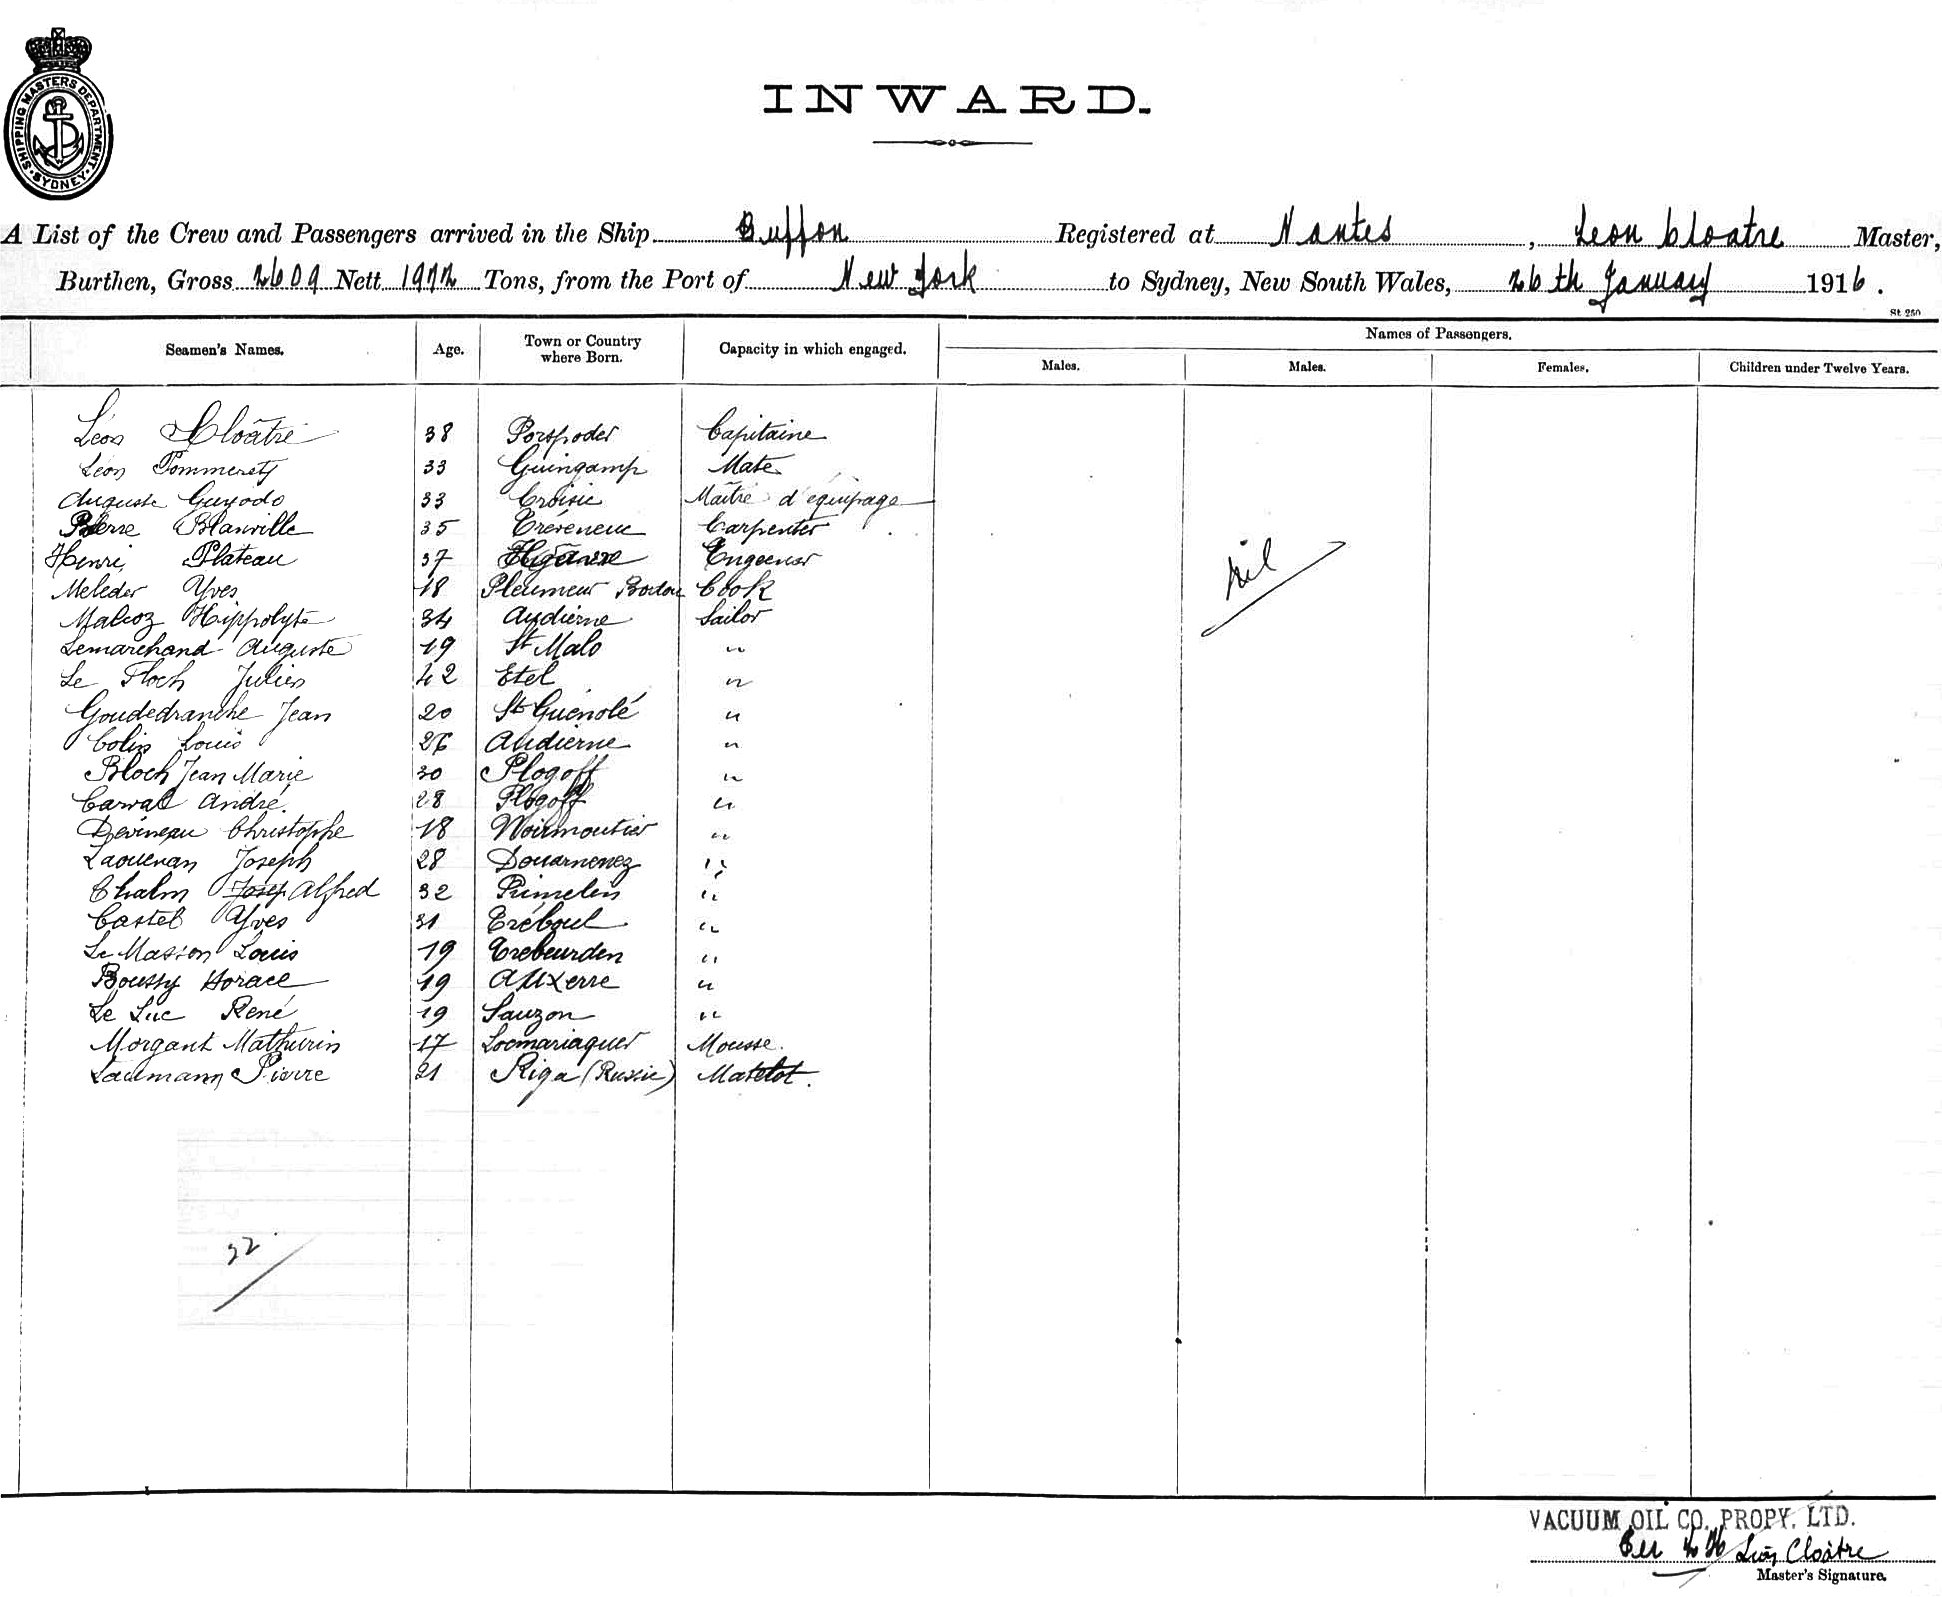 SHIPPING MASTERS DEPARTMENT SYDNEY
INWARD.
A List of the Crew and Passengers arrived in the Ship Buffon Registered at Nantes, Leon Cloatre Master,
Burthen, Gross 2609 Nett 1972 Tons, from the Port of New York to Sydney, New South Wales, 26th January 1916.
St. 250
Names of Passengers.
Seamen's Names. Age. Town or Country where Born. Capacity in which engaged. Males. Males. Females. Children under Twelve Years.
Léon Cloâtre 38 Porspoder Capitaine
Léon Pommeretz 33 Guingamp Mate
Auguste Guyodo 33 Croisic Maître d'équipage
Pierre Blanville 35 Tréveneuc Carpenter
Henri Plateau 37 Engeener
Meleder Yves 18 Pleumeur Bodou Cook
Malcoz Hippolyte 34 Audierne Sailor
Lemarchand Auguste 19 St Malo "
Le Floch Julien 42 Etel "
Goudedranche Jean 20 St Guénolé "
Colin Louis 26 Audierne "
Bloch Jean Marie 30 Plogoff "
Carval André 28 Plogoff "
Devineau Christophe 18 Noirmoutier "
Laouenan Joseph 28 Douarnenez "
Chalm Josep Alfred 32 Primelin "
Castel Yves 31 Tréboul "
Le Masson Louis 19 Trebeurden "
Boussy Horace 19 Auxerre "
Le Luc René 19 Sauzon "
Morgant Mathurin 17 Locmariaquer Mousse.
Laumann Pierre 21 Riga (Russie) Matelot.
nil
22
VACUUM OIL CO. PROPY. LTD.
Léon Cloâtre
Master's Signature.